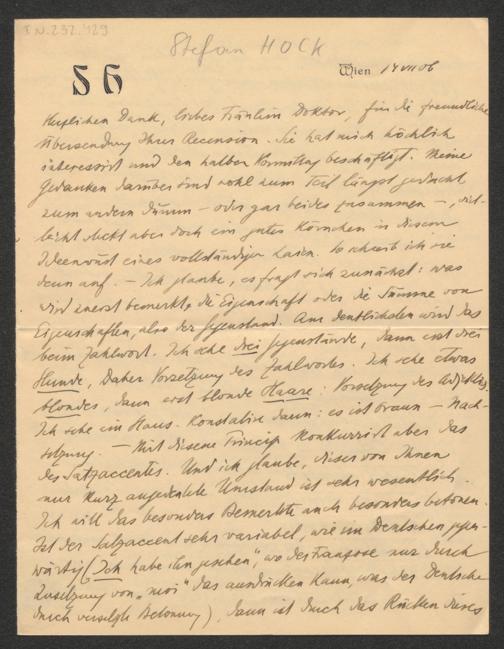 I.N. 232.429
Stefan HOCK
S H
Wien 14 VII 06
Herzlichen Dank, liebes Fräulein Doktor, für die freundliche
Übersendung Ihrer Recension. Sie hat mich höchlich
interessirt und den halben Vormittag beschäftigt. Meine
Gedanken darüber sind wohl zum Teil längst gedacht
zum andern dumm – oder gar beides zusammen –, viel-
leicht steckt aber doch ein gutes Körnchen in diesem
Ideenwust eines vollständigen Laien. So schreib ich sie
denn auf. – Ich glaube, es fragt sich zunächst: was
wird zuerst bemerkt, die Eigenschaft oder die Summe von
Eigenschaften, also der Gegenstand. Am deutlichsten wird das
beim Zahlwort. Ich sehe drei Gegenstände, dann erst drei
Hunde, Daher Vorsetzung des Zahlwortes. Ich sehe etwas
blondes, dann erst blonde Haare: Vorsetzung des Adjektivs.
Ich sehe ein Haus. Konstatire dann: es ist braun – Nach-
setzung. – Mit diesem Princip konkurrirt aber das
des Satzaccentes. Und ich glaube, dieser von Ihnen
nur kurz angedeutete Umstand ist sehr wesentlich.
Ich will das besonders Bemerkte auch besonders betonen.
Ist der Satzaccent sehr variabel, wie im Deutschen gegen-
wärtig („Ich habe ihn gesehen", wo der Franzose nur durch
Zusetzung von „moi" das ausdrücken kann, was der Deutsche
durch Betonung), dann ist durch das Rücken dieses